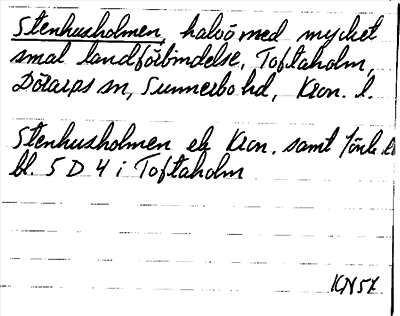 Stenhusholmen, halvö med mycket
smal landförbindelse, Toftaholm,
Dörarps sn, Sunnerbo hd, Kron. l.
Stenhusholmen ek Kron. samt Jönk. l.
bl. 5 D 4 i Toftaholm